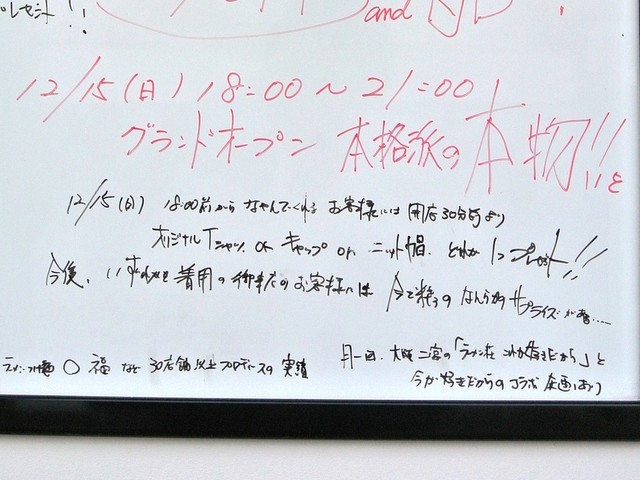 プレゼント!!
and
12/15(日) 18:00 ~ 21:00
グランドオープン 本格派の本物!!!を
12/15(日) 18:00前から なやんでくれる お客様には 開店30分前より
オリジナルTシャツ or キャップ or ニット帽. どれか1つプレゼント!!
今後、いずれかを着用の御来店のお客様には 今で終るのなんらかのサプライズが有……
月一回. 大阪 二宮の「ラーメン荘 これが好きだから」と
○福 など 30店舗以上プロデュースの実績
今が好きだからのコラボ企画あり